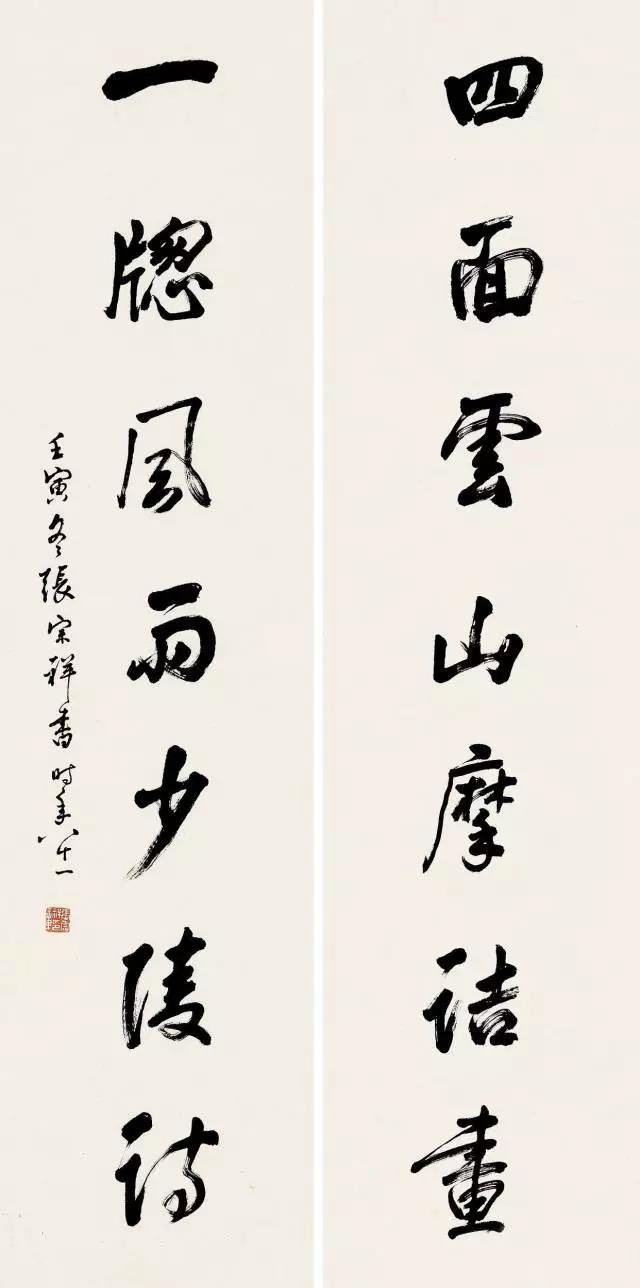 四面雲山摩詰畫
一牎風雨少陵詩
壬寅冬張宗祥書時年八十一